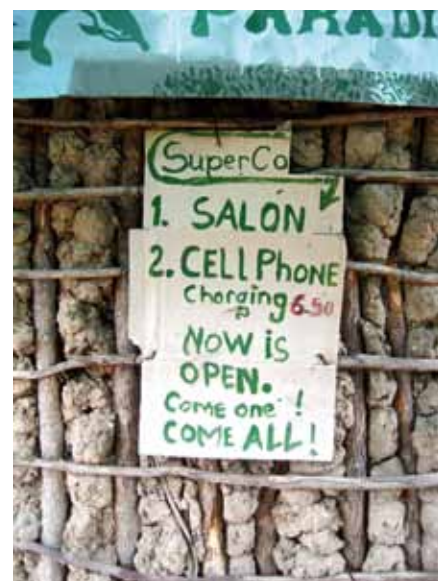 SuperCo
1. SALON
2. CELL PHONE
Charging 6.50
NOW is
OPEN.
Come one !
COME ALL!